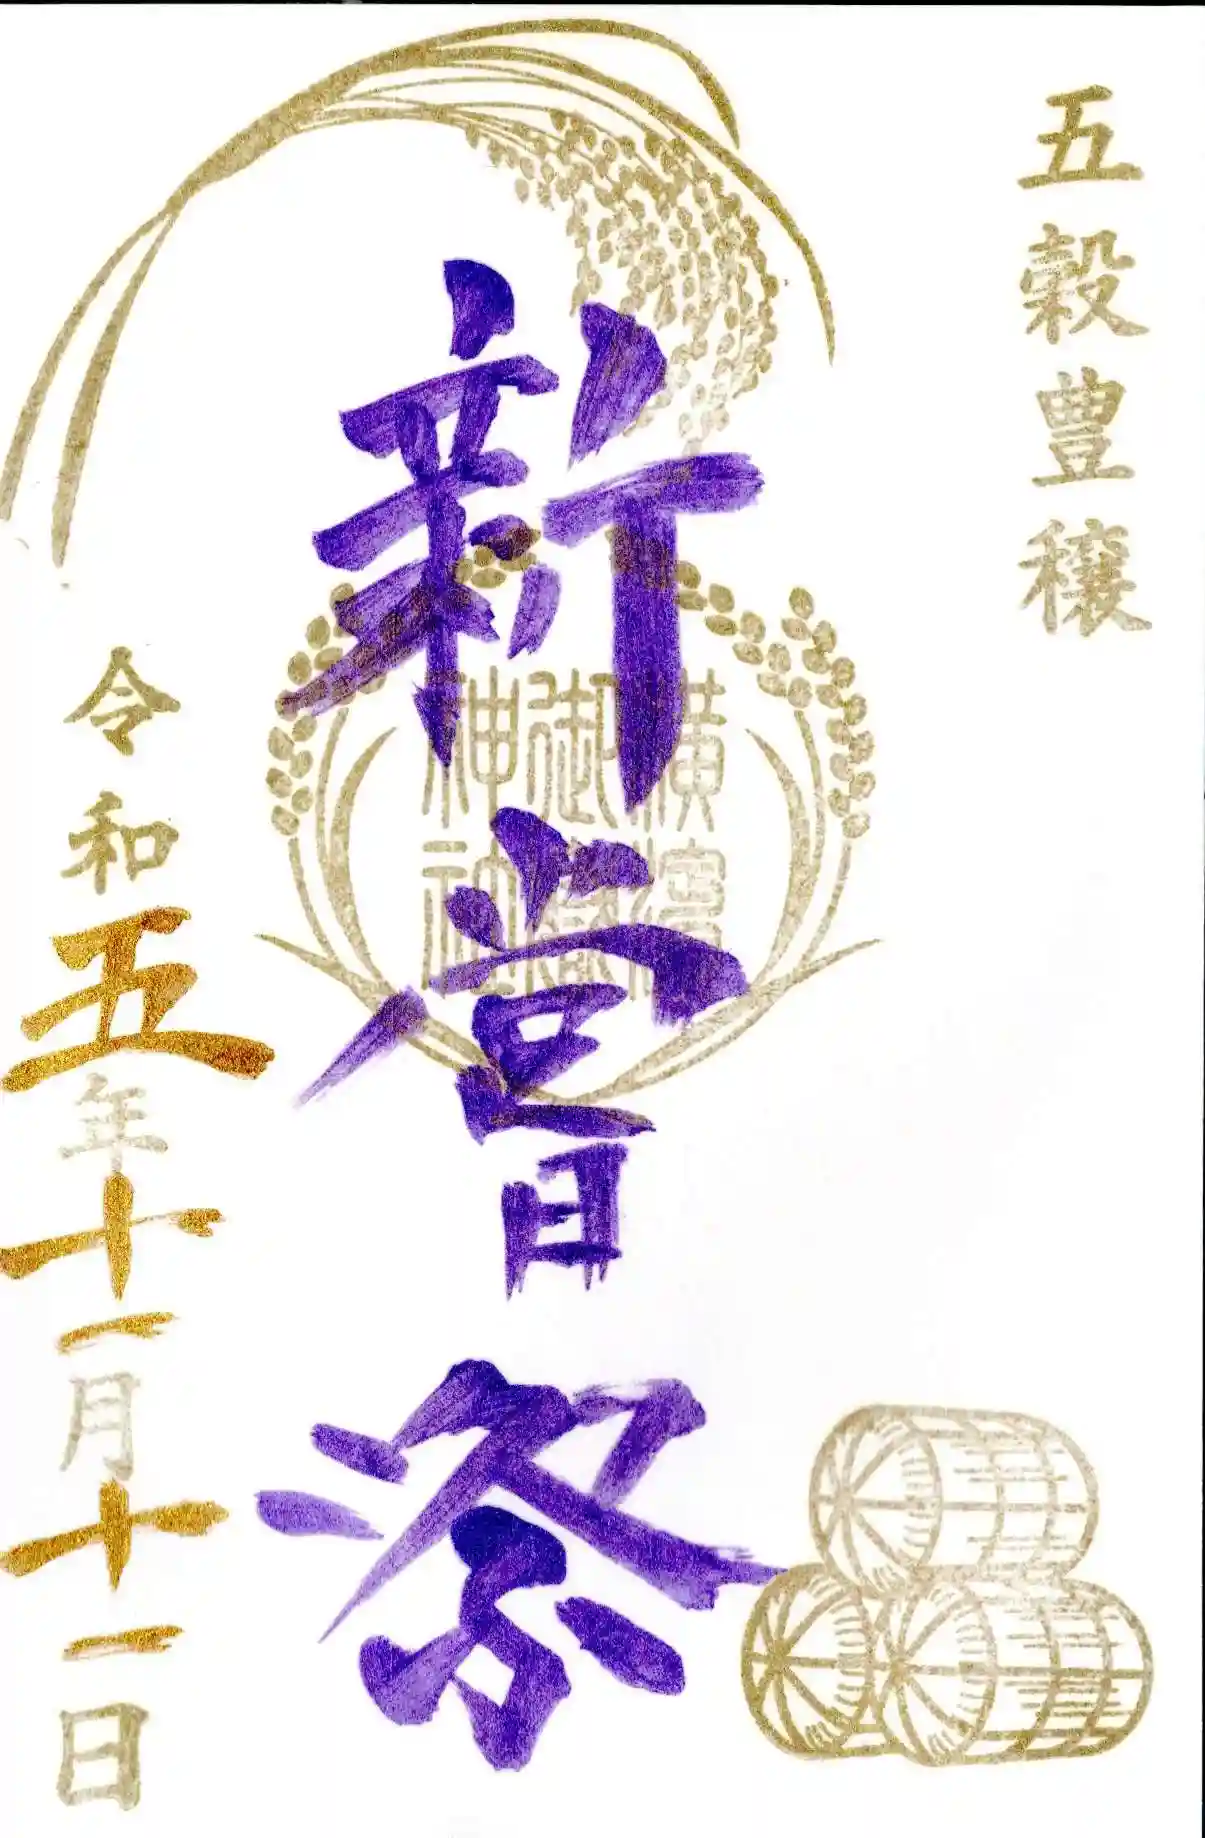 五穀豊穣
新嘗祭
横濱
御嶽
神社
令和五年十一月十一日